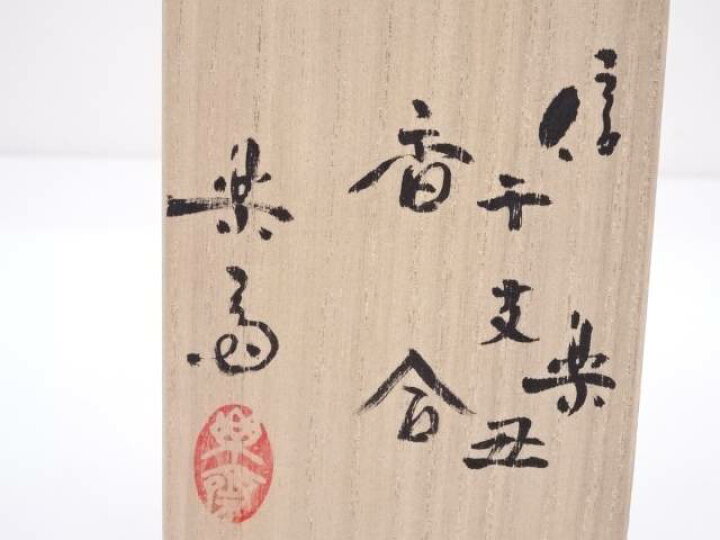 信楽
干支丑
香合
楽斎
楽齋